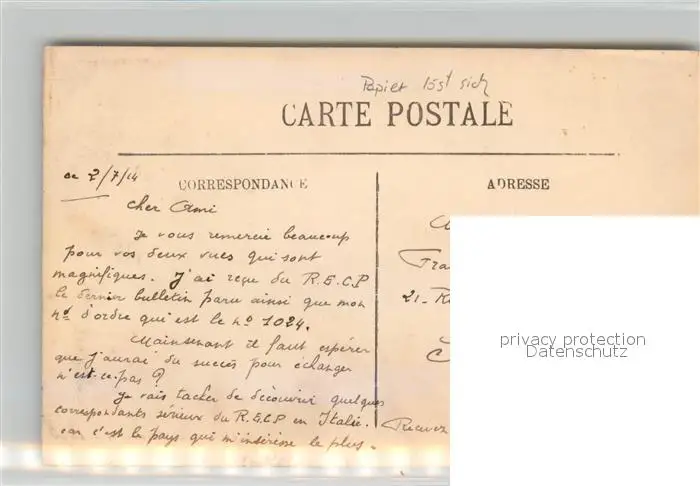 Papier löst sich
CARTE POSTALE
ce 2/7/14
CORRESPONDANCE
ADRESSE
Cher Ami
Je vous remercie beaucoup
pour vos deux vues qui sont
magnifiques. J'ai reçu du R.E.C.P
le dernier bulletin paru ainsi que mon
nd d'ordre qui est le no 1024.
Maintenant il faut espérer
que j'aurai du succès pour échanger
n'est-ce-pas ?
Je vais tacher de découvrir quelques
correspondants sérieux du R.E.C.P en Italie.
car c'est le pays qui m'intéresse le plus.
21-
Recevez
privacy protection
Datenschutz